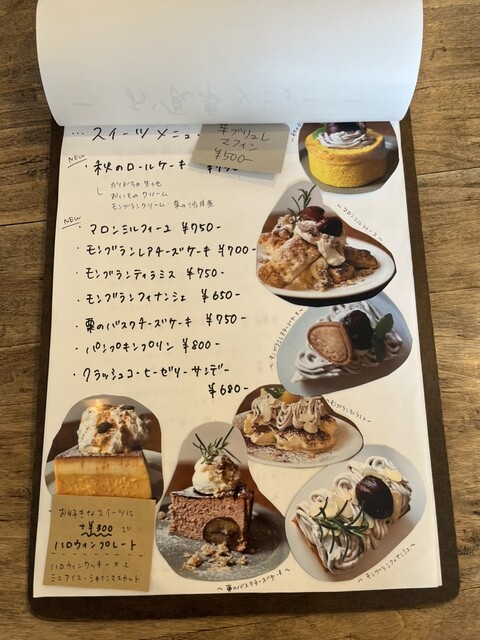 … スイーツメニュー
芋ブリュレ
マフィン
¥500-
NEW
・秋のロールケーキ
└ かぼちゃ生地
おいものクリーム
モンブランクリーム・栗の渋皮煮
NEW
・マロンミルフィーユ ¥750-
・モンブランレアチーズケーキ ¥700-
・モンブランティラミス ¥750-
・モンブランフィナンシェ ¥650-
・栗のバスクチーズケーキ ¥750-
・パンプキンプリン ¥800-
・クラッシュコーヒーゼリーサンデー
¥680-
〜マロンミルフィーユ〜
〜モンブランレアチーズケーキ〜
〜モンブランティラミス〜
〜モンブランフィナンシェ〜
〜栗のバスクチーズケーキ〜
お好きなスイーツに
+¥300 で
ハロウィンプレート
ハロウィンクッキー×2
ミニアイス・シャインマスカット